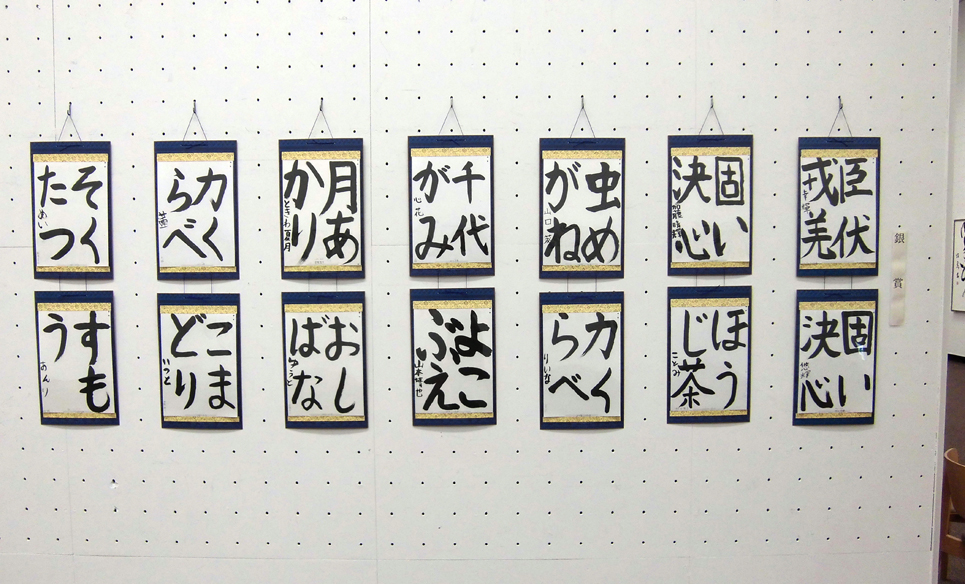 銀賞
臣伏
戎羌
固い
決心
虫め
がね
山口
千代
がみ
心花
月あ
かり
ときわ夏月
力く
らべ
そく
たつ
めい
固い
決心
ほう
じ茶
ことみ
力く
らべ
りいな
よこ
ぶえ
山本
おし
ばな
ゆうと
こま
どり
いっと
すも
う
あんり